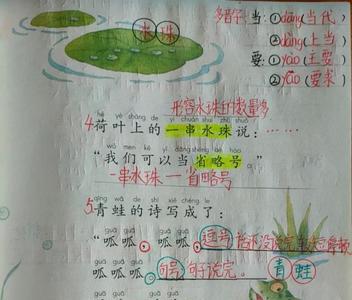 水珠
多音字:当:①dāng(当代)
②dàng(上当)
要:①yào(主要)
②yāo(要求)
形容水珠的数量多
hé yè shàng de yí chuàn shuǐ zhū shuō
4荷叶上的一串水珠说:……
wǒ men kě yǐ dāng shěng lüè hào
“我们可以当省略号。”
一串水珠——省略号
qīng wā de shī xiě chéng le
5.青蛙的诗写成了:
guā guā guā guā
“呱呱,呱呱,逗号
guā guā guā
呱呱呱。句号,句子说完。
青蛙